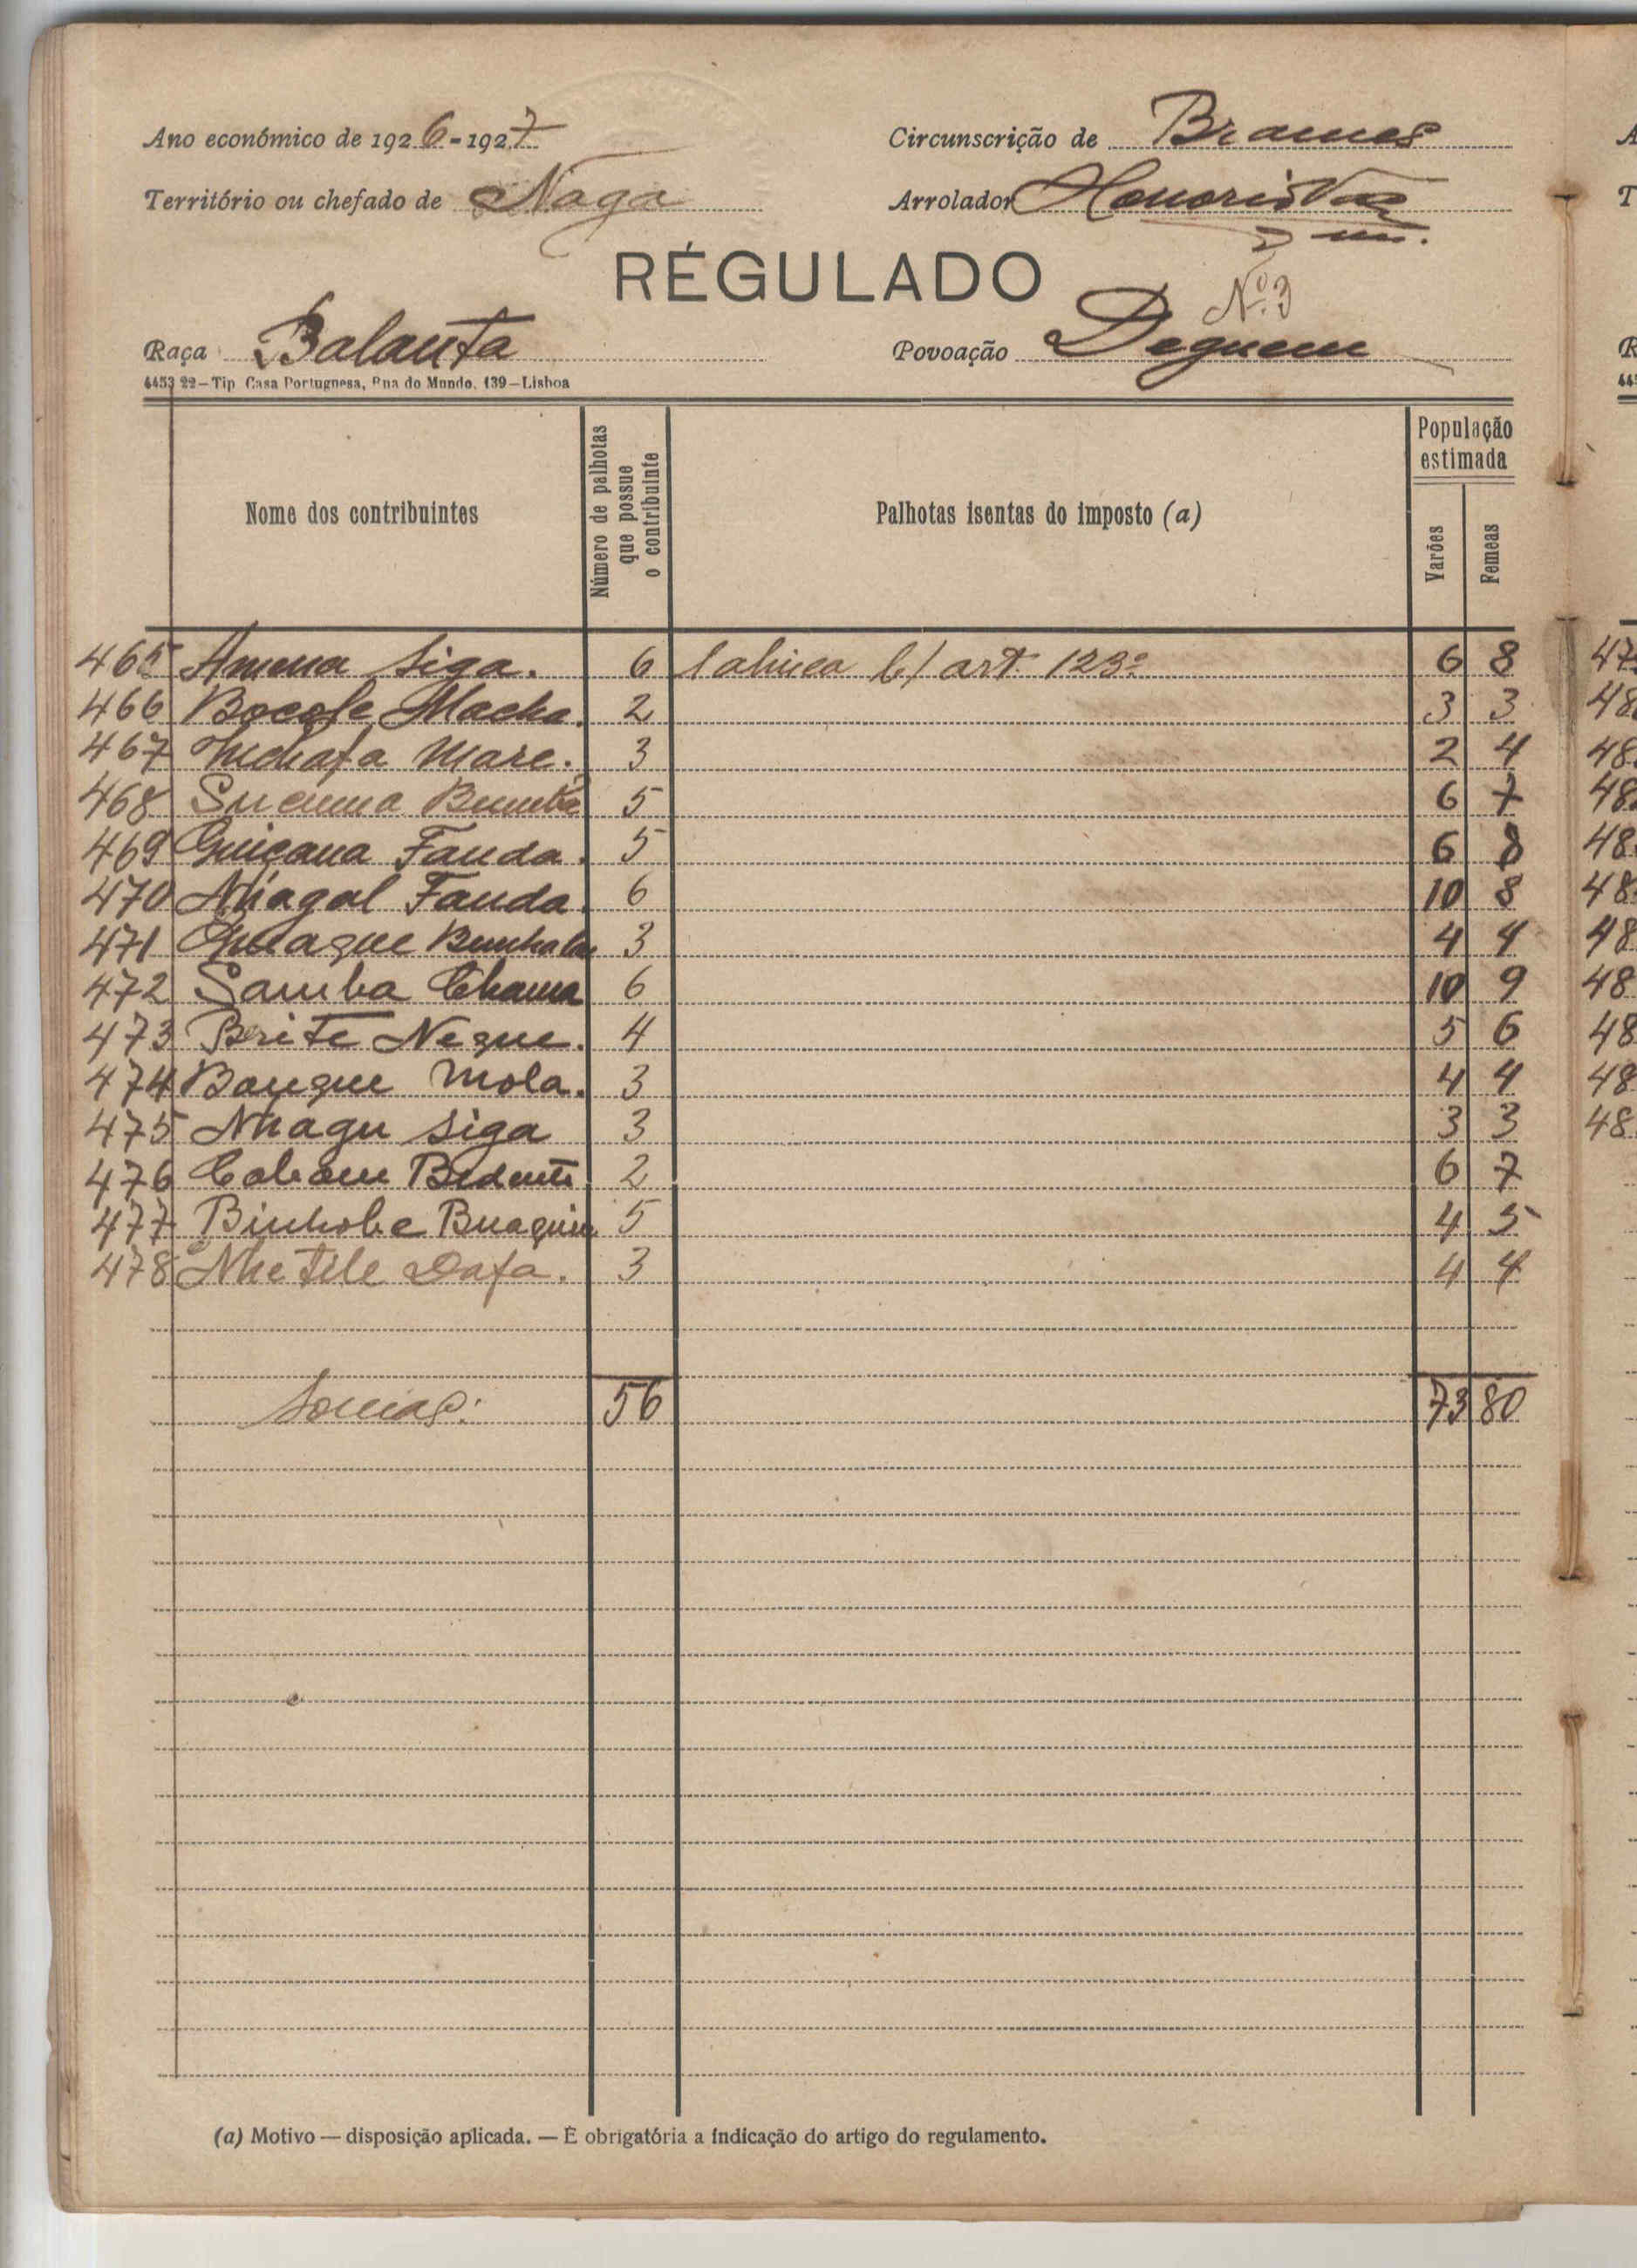 Ano económico de 1926-1927
Circunscrição de Brames
Território ou chefado de Naga
Arrolador Honorio Vaz
RÉGULADO
Nº 3
Raça Balanta
Povoação Deguem
4453 22—Tip Casa Portuguesa, Rua do Mundo, 139—Lisboa
Nome dos contribuintes
Número de palhotas que possue o contribuinte
Palhotas isentas do imposto (a)
População estimada
Varões
Femeas
465 Amena Siga. 6 1 art. 123º 6 8
466 Bocofe Macha. 2 3 3
467 Mare. 3 2 4
468 Sucuma 5 6 7
469 Guiçana Fanda. 5 6 8
470 Nhagal Fanda. 6 10 8
471 3 4 4
472 Samba Chama 6 10 9
473 Brite Neque. 4 5 6
474 Banque Mola. 3 4 4
475 Nhagu Siga 3 3 3
476 2 6 7
477 Binhobe 5 4 5
478 Nhe Tile Dafa. 3 4 4
Somas: 56 73 80
(a) Motivo — disposição aplicada. — É obrigatória a indicação do artigo do regulamento.